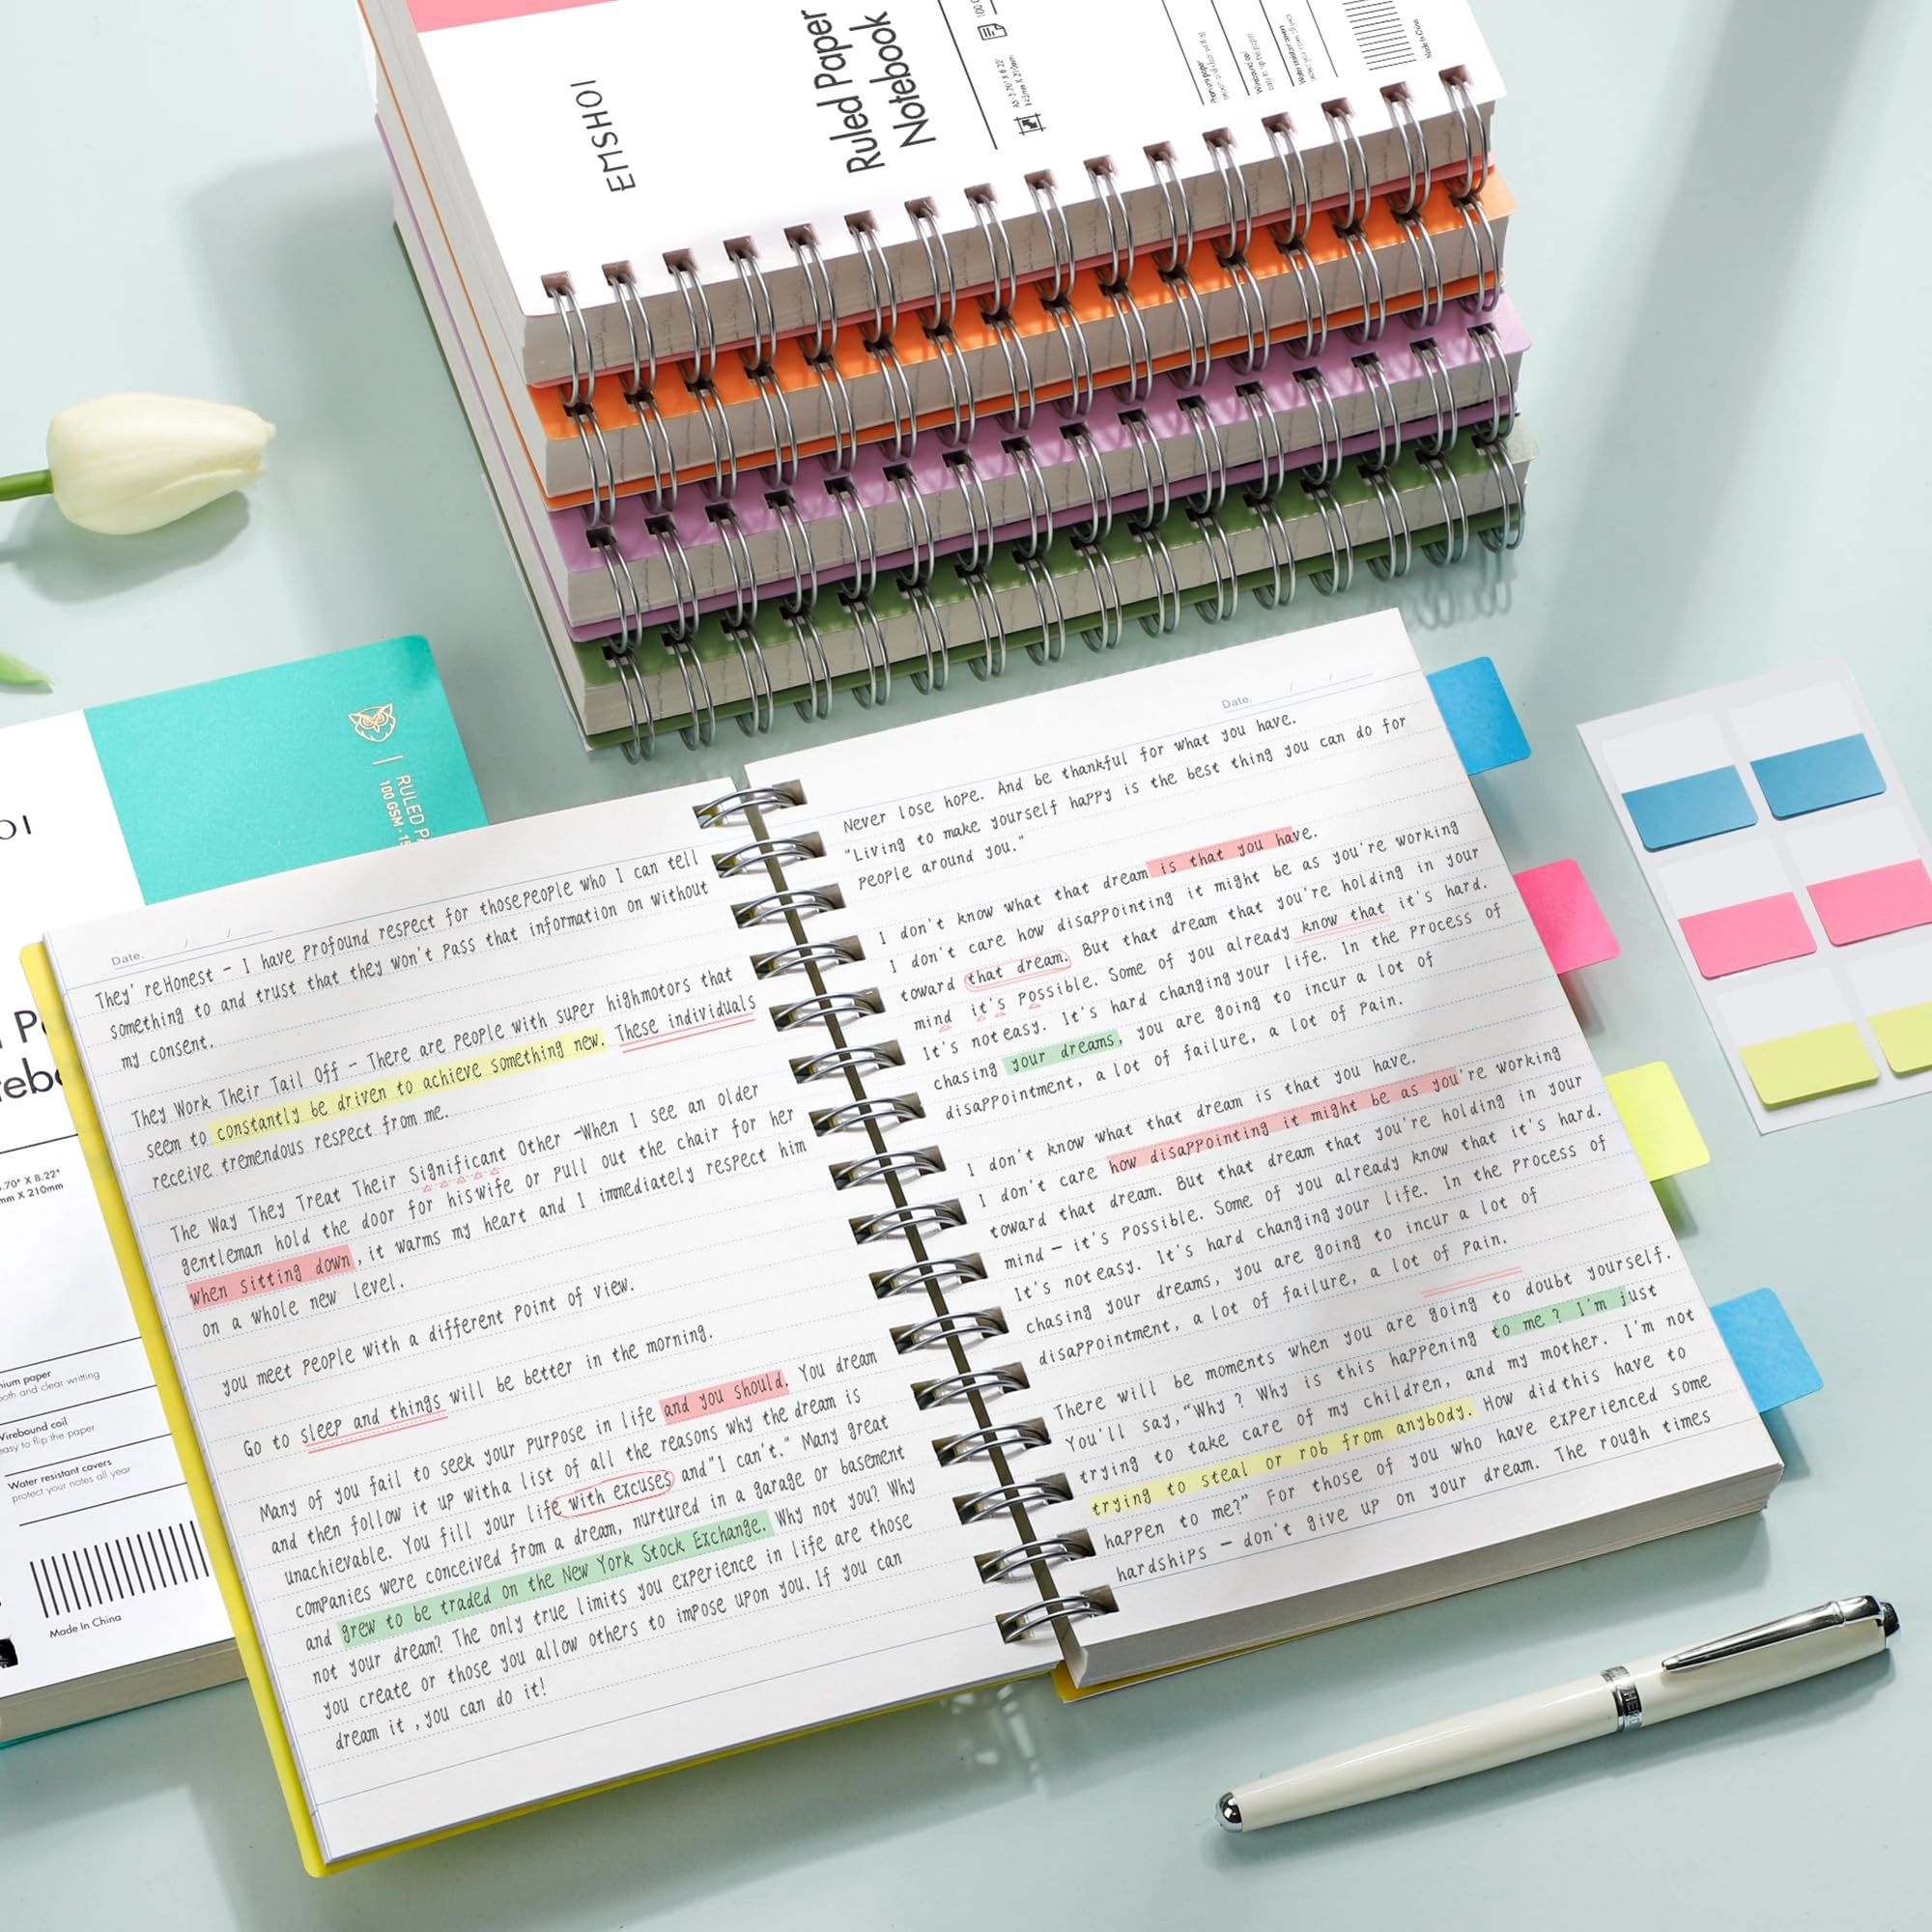 EMSHOI
Ruled Paper
Notebook
A5-5.70" X 8.22"
145mm X 210mm
Premium paper
Wirebound coil
Water resistant covers
Made In China
RULED P
100 GSM · 15
OI
.70" X 8.22"
mm X 210mm
mium paper
ooth and clear writting
Wirebound coil
easy to flip the paper
Water resistant covers
protect your notes all year
Made In China
Date. / /
They' reHonest - I have profound respect for thosepeople who I can tell
something to and trust that they won't pass that information on without
my consent.
They Work Their Tail Off - There are people with super highmotors that
seem to constantly be driven to achieve something new. These individuals
receive tremendous respect from me.
The Way They Treat Their Significant Other -When I see an older
gentleman hold the door for hiswife or pull out the chair for her
when sitting down, it warms my heart and I immediately respect him
on a whole new level.
you meet people with a different point of view.
Go to sleep and things will be better in the morning.
Many of you fail to seek your purpose in life and you should. You dream
and then follow it up witha list of all the reasons why the dream is
unachievable. You fill your life with excuses and"I can't." Many great
companies were conceived from a dream, nurtured in a garage or basement
and grew to be traded on the New York Stock Exchange. Why not you? Why
not your dream? The only true limits you experience in life are those
you create or those you allow others to impose upon you. If you can
dream it , you can do it!
Date. / /
Never lose hope. And be thankful for what you have.
"Living to make yourself happy is the best thing you can do for
people around you."
I don't know what that dream is that you have.
I don't care how disappointing it might be as you're working
toward that dream. But that dream that you're holding in your
mind it's possible. Some of you already know that it's hard.
It's not easy. It's hard changing your life. In the process of
chasing your dreams, you are going to incur a lot of
disappointment, a lot of failure, a lot of pain.
I don't know what that dream is that you have.
I don't care how disappointing it might be as you're working
toward that dream. But that dream that you're holding in your
mind - it's possible. Some of you already know that it's hard.
It's not easy. It's hard changing your life. In the process of
chasing your dreams, you are going to incur a lot of
disappointment, a lot of failure, a lot of pain.
There will be moments when you are going to doubt yourself.
You'll say,"Why ? Why is this happening to me ? I'm just
trying to take care of my children, and my mother. I'm not
trying to steal or rob from anybody. How did this have to
happen to me?" For those of you who have experienced some
hardships - don't give up on your dream. The rough times